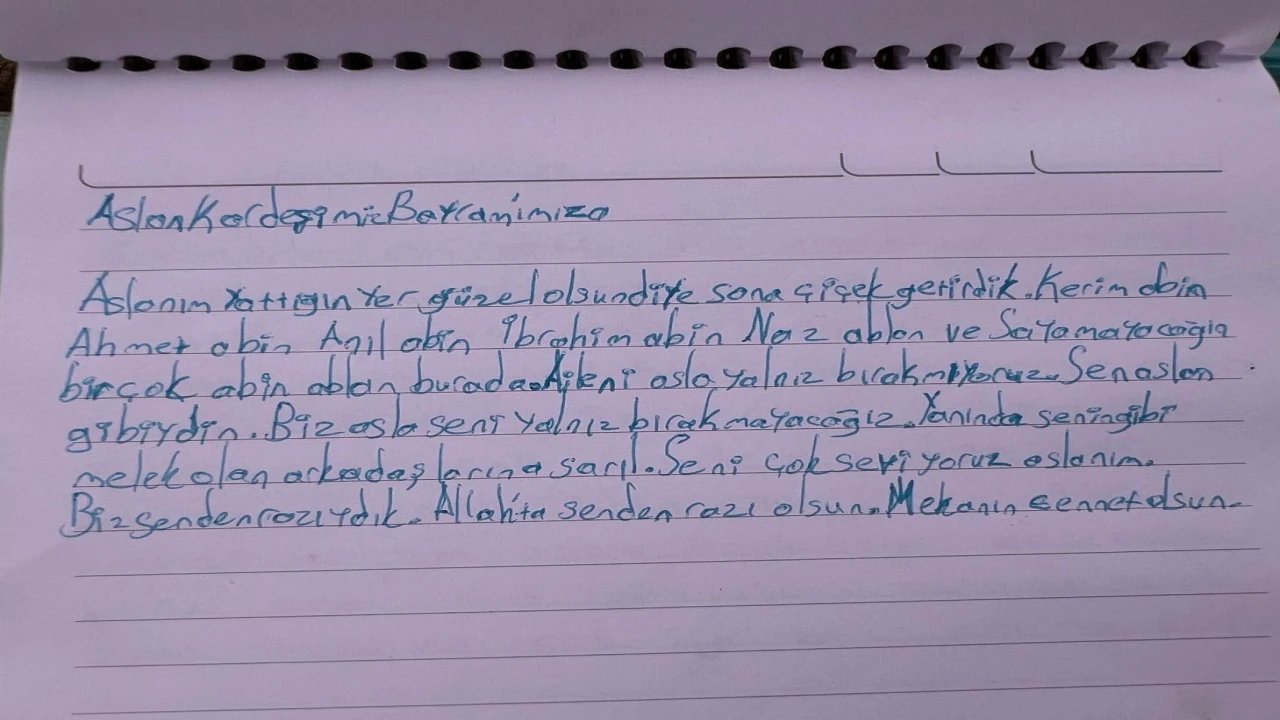 Aslan Kardeşimiz Bayram'ımıza
Aslanım Yattığın Yer güzel olsun diye sana çiçek getirdik. Kerim abin
Ahmet abin Anıl abin İbrahim abin Naz ablan ve Sayamayacağız
birçok abin ablan burada. Aileni asla yalnız bırakmıyoruz. Sen aslan
gibiydin. Biz asla seni yalnız bırakmayacağız. Yanında senin gibi
melek olan arkadaşlarına sarıl. Seni çok seviyoruz aslanım.
Biz senden razıydık. Allah'ta senden razı olsun. Mekanın cennet olsun.